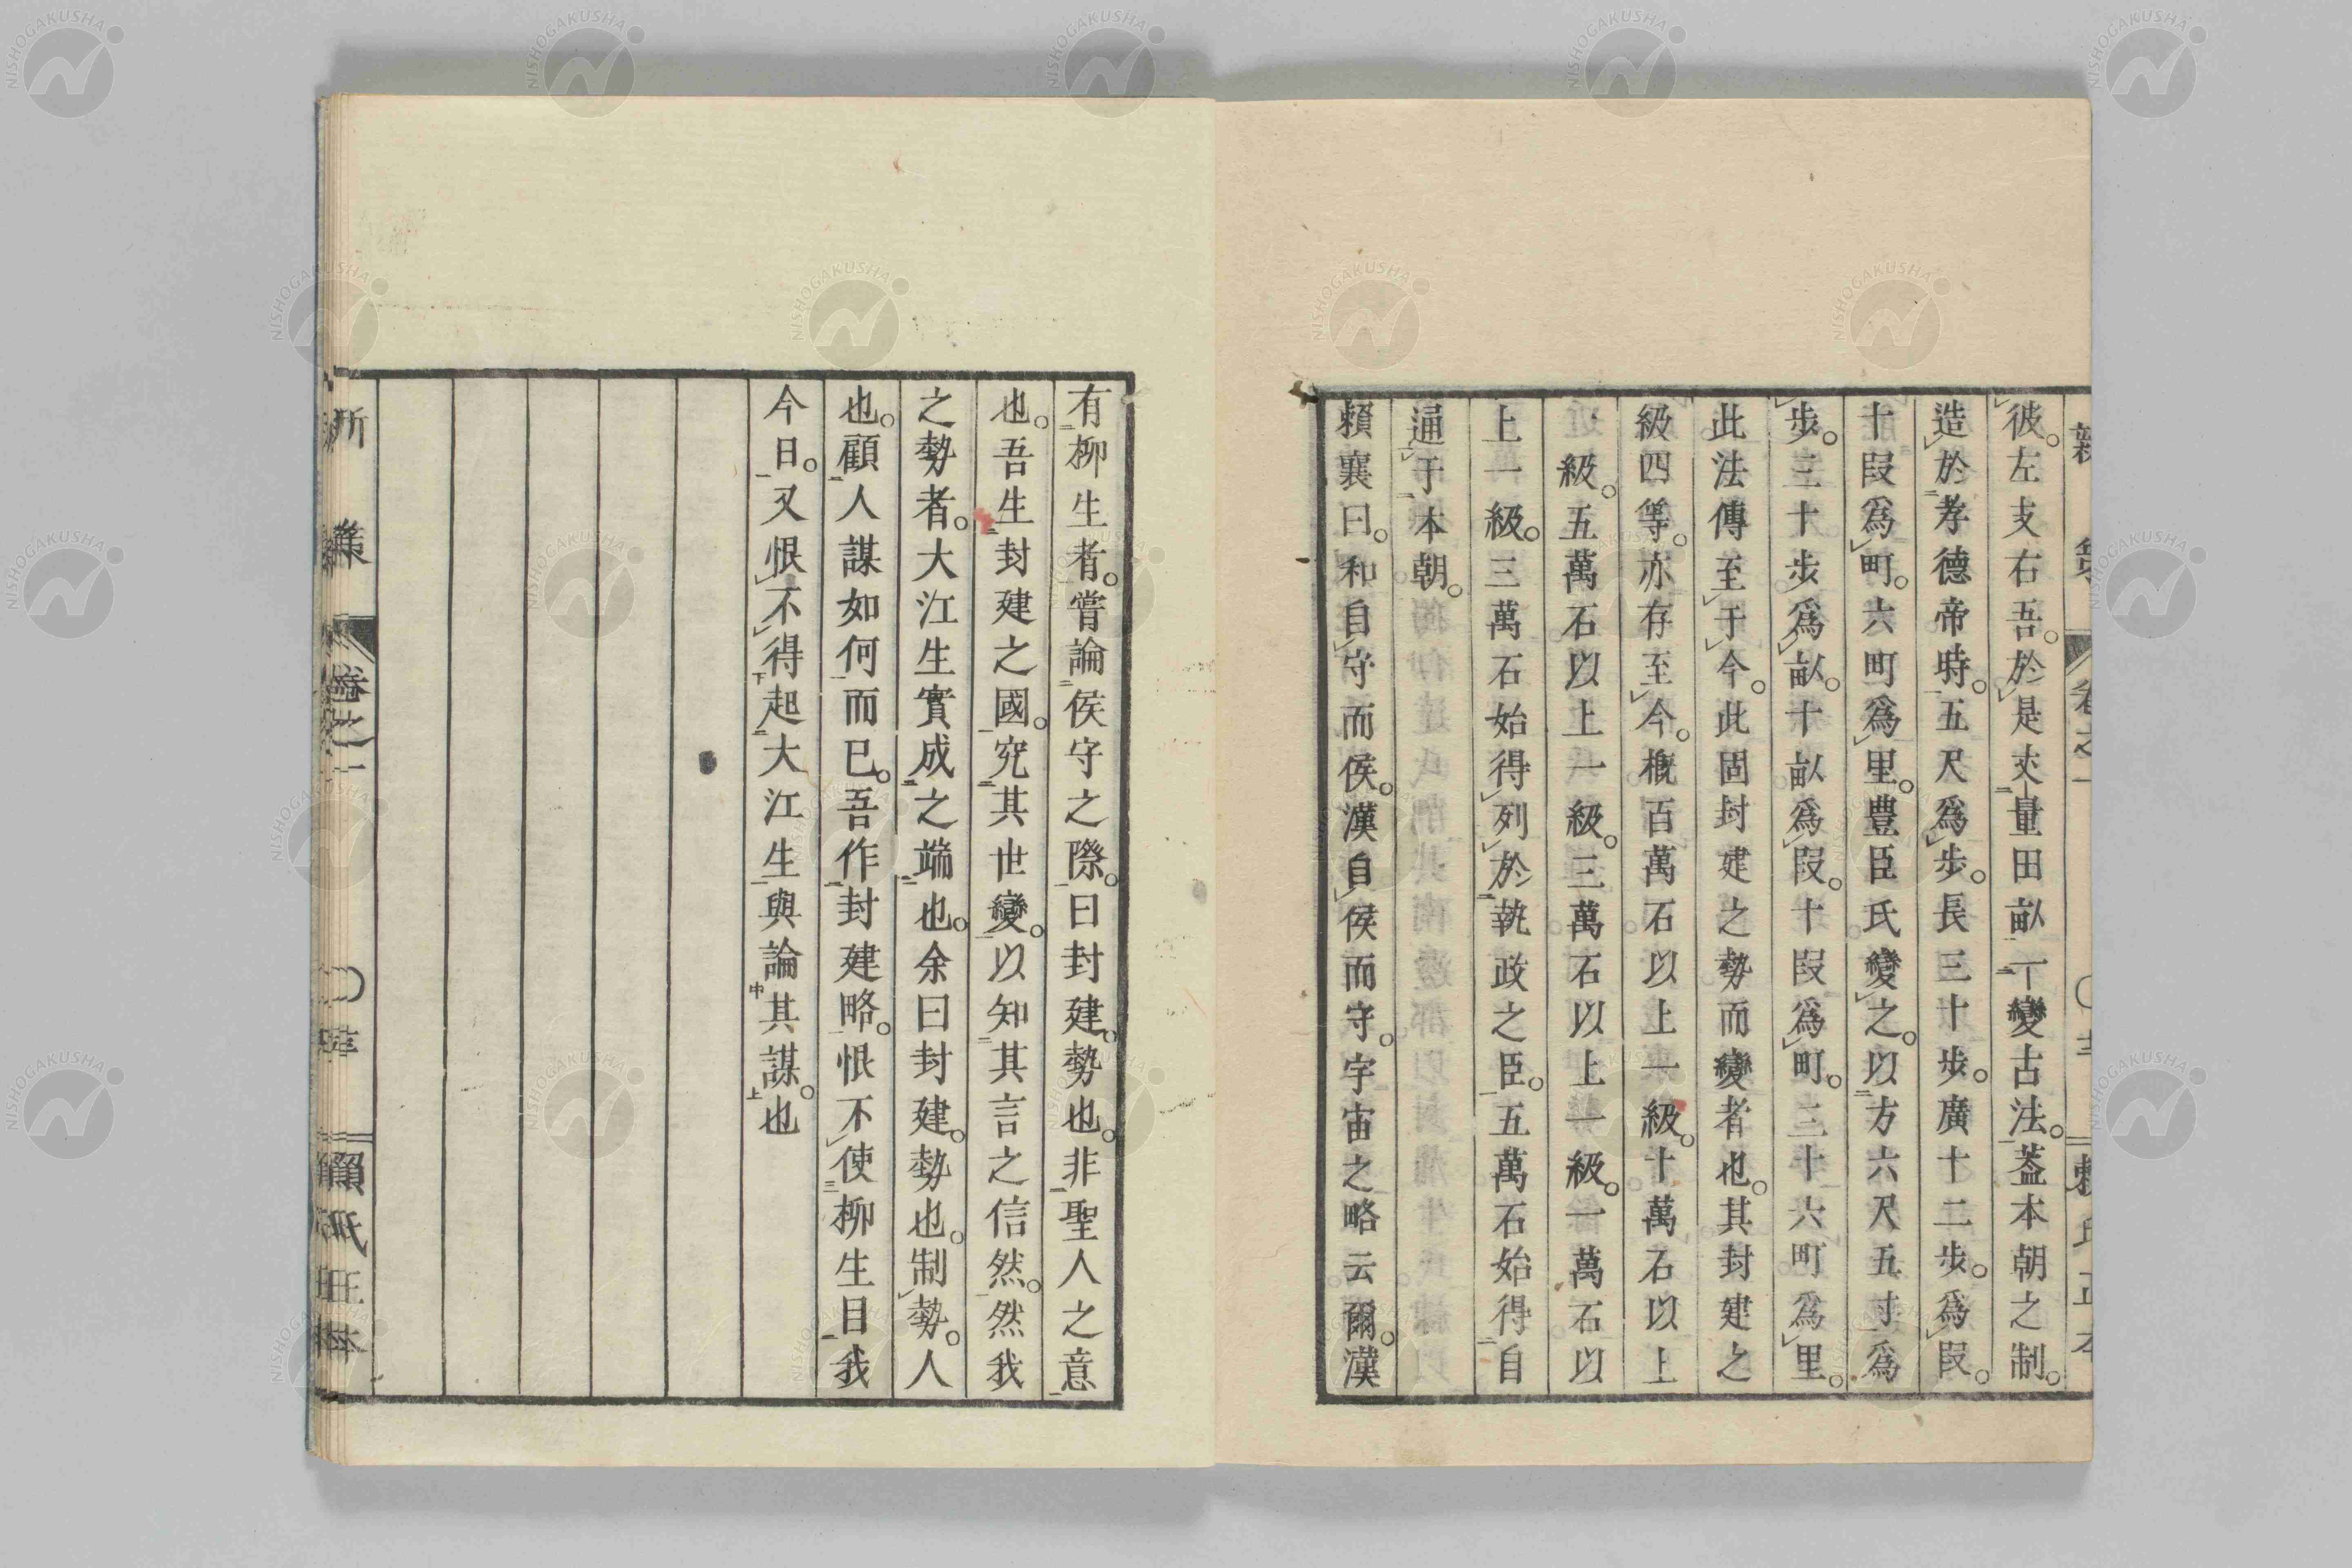 彼。左支右吾。於是丈量田畝。一變古法。葢本朝之制。
造於孝德帝時。五尺爲步。長三十步。廣十二步。爲段。
十段爲町。六町爲里。豊臣氏變之。以方六尺五寸爲
步。三十步爲畝。十畝爲段。十段爲町。三十六町爲里。
此法傳至于今。此固封建之勢而變者也。其封建之
級四等。亦存至今。槪百萬石以上一級。十萬石以上
一級。五萬石以上一級。三萬石以上一級。一萬石以
上一級。三萬石始得列於執政之臣。五萬石始得自
通于本朝。
賴襄曰。和自守而侯。漢自侯而守。宇宙之略云爾。漢
有柳生者。嘗論侯守之際。曰封建。勢也。非聖人之意
也。吾生封建之國。究其世變。以知其言之信然。然我
之勢者。大江生實成之端也。余曰封建。勢也。制勢。人
也。顧人謀如何而已。吾作封建略。恨不使柳生目我
今日。又恨不得起大江生與論其謀。也
新策 卷之一 賴氏正本
NISHOGAKUSHA